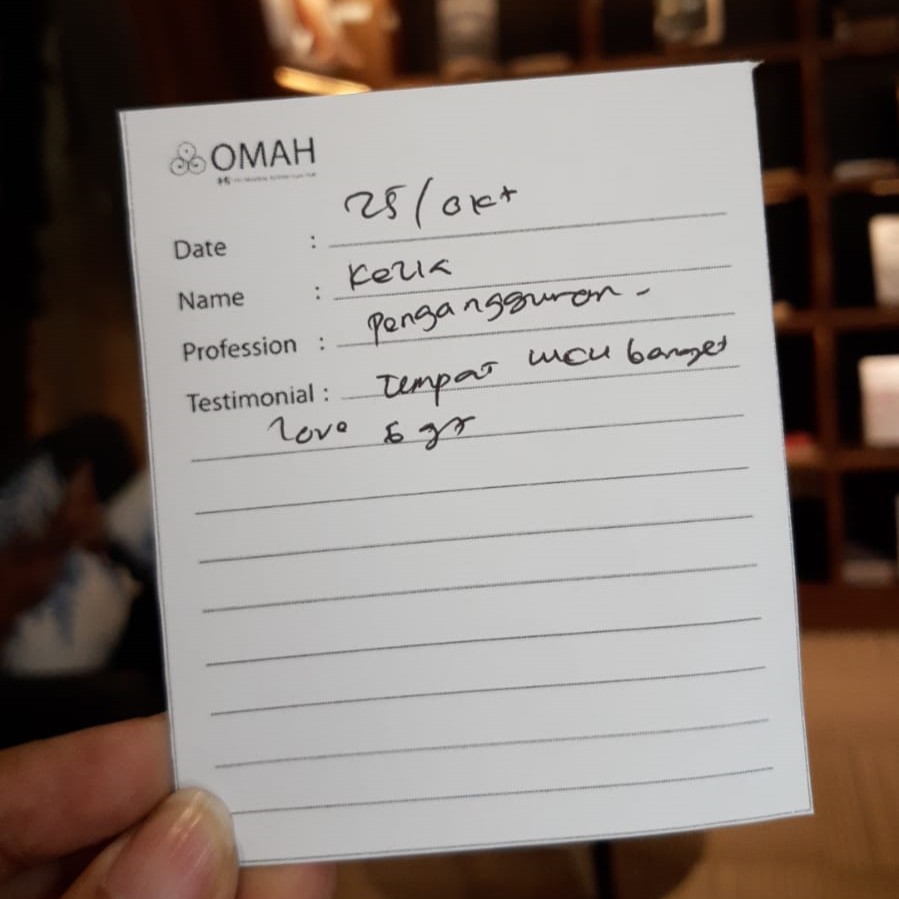 OMAH
Date : 25/okt
Name : Kezia
Profession : Pengangguran -
Testimonial : Tempat lucu banget
love